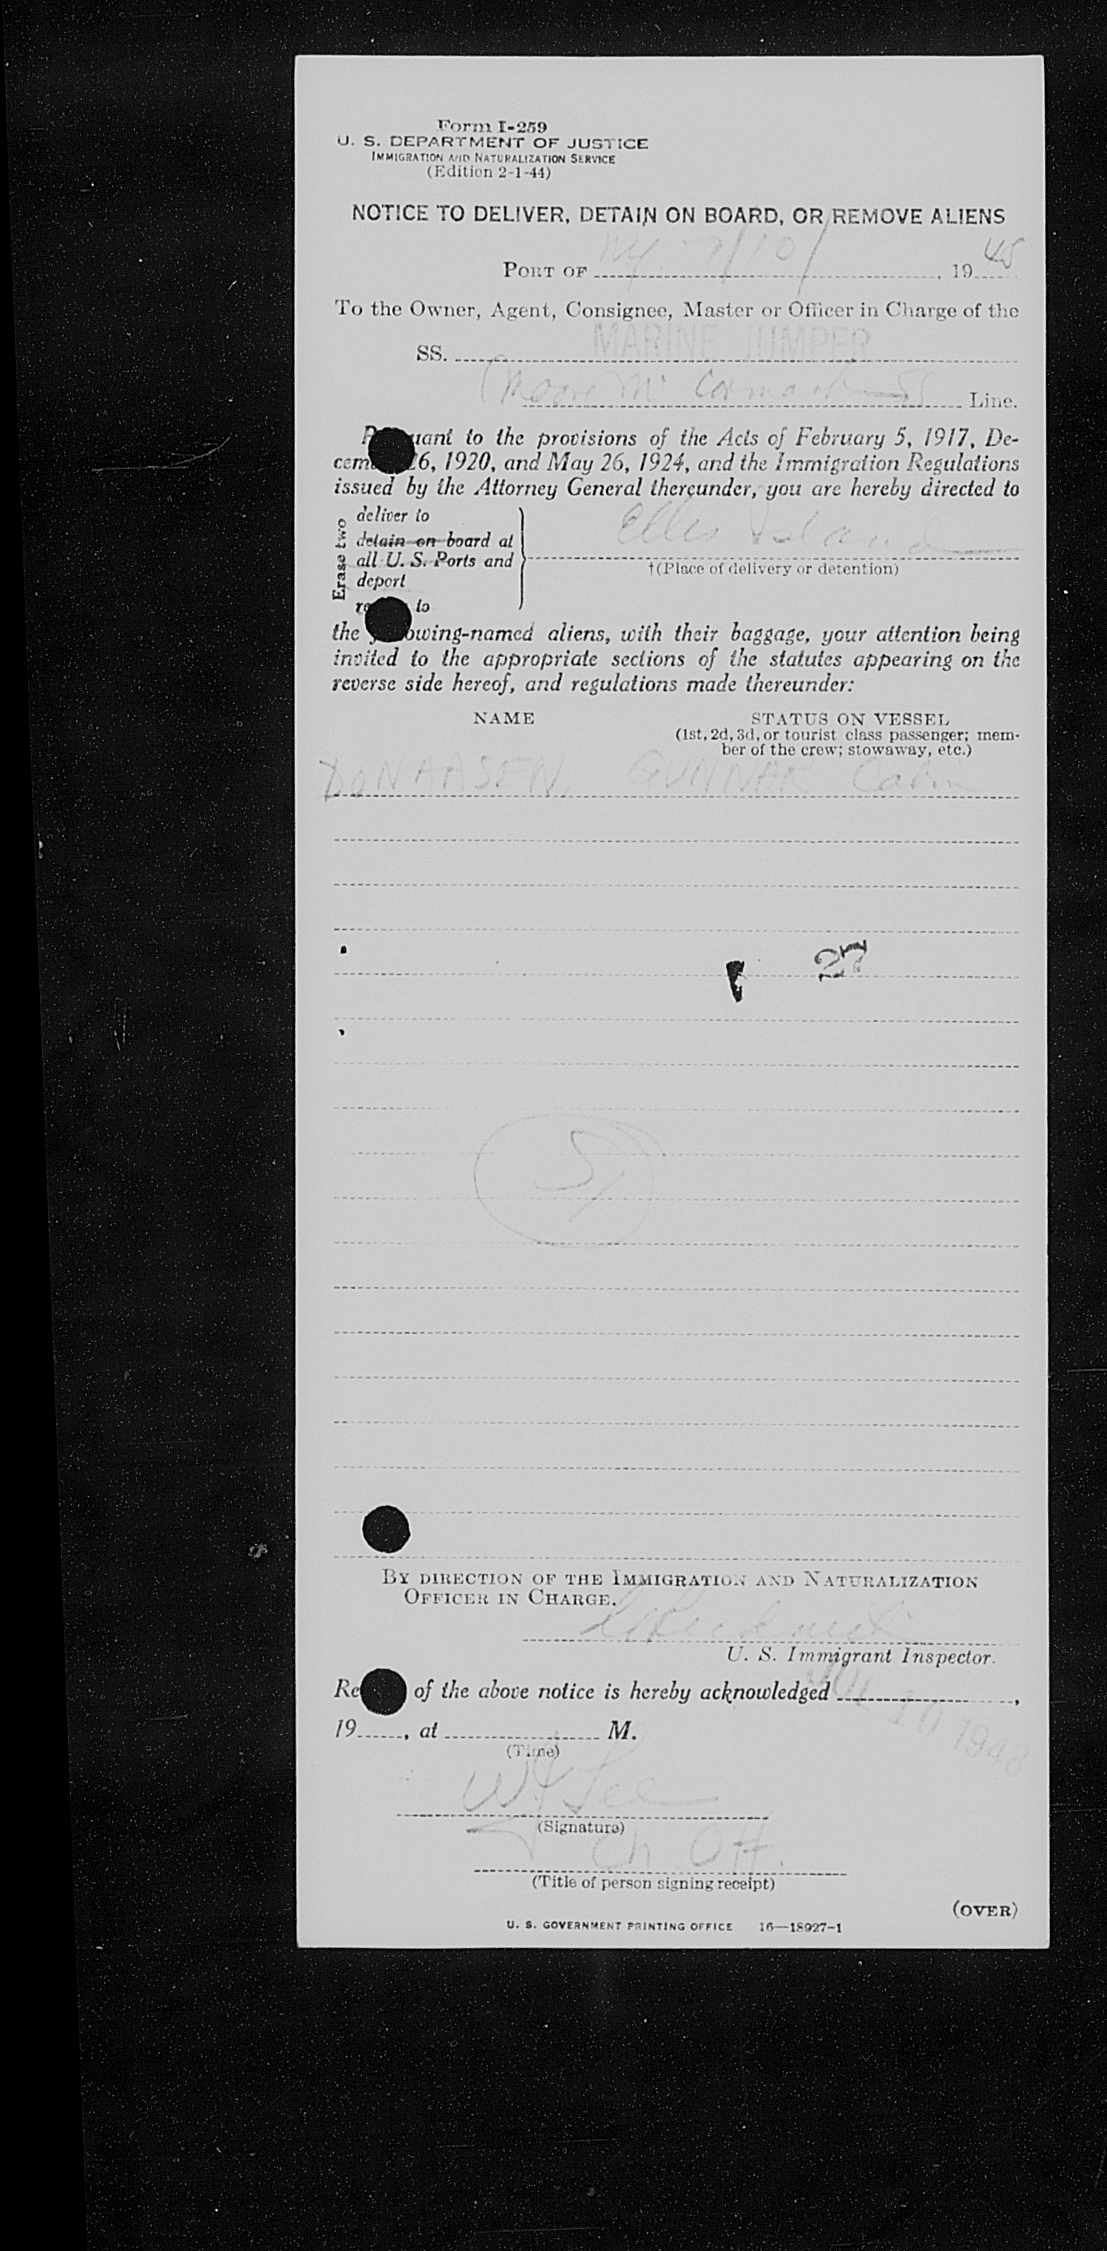 Form I-259
U. S. DEPARTMENT OF JUSTICE
IMMIGRATION AND NATURALIZATION SERVICE
(Edition 2-1-44)
NOTICE TO DELIVER, DETAIN ON BOARD, OR REMOVE ALIENS
PORT OF NY 7/10/, 1948
To the Owner, Agent, Consignee, Master or Officer in Charge of the
SS. MARINE JUMPER
Moore Mc Cormack Line.
uant to the provisions of the Acts of February 5, 1917, De-
cem 26, 1920, and May 26, 1924, and the Immigration Regulations
issued by the Attorney General thereunder, you are hereby directed to
Erase two
deliver to
detain on board at
all U. S. Ports and
deport
to
Ellis Island
†(Place of delivery or detention)
the owing-named aliens, with their baggage, your attention being
invited to the appropriate sections of the statutes appearing on the
reverse side hereof, and regulations made thereunder:
NAME STATUS ON VESSEL
(1st, 2d, 3d, or tourist class passenger; mem-
ber of the crew; stowaway, etc.)
GUNNAR Cabin
27
BY DIRECTION OF THE IMMIGRATION AND NATURALIZATION
OFFICER IN CHARGE.
U. S. Immigrant Inspector.
Re of the above notice is hereby acknowledged,
JUL 10 1948
19, at M.
(Time)
(Signature)
Ch Off.
(Title of person signing receipt)
(OVER)
U. S. GOVERNMENT PRINTING OFFICE 16—18927-1